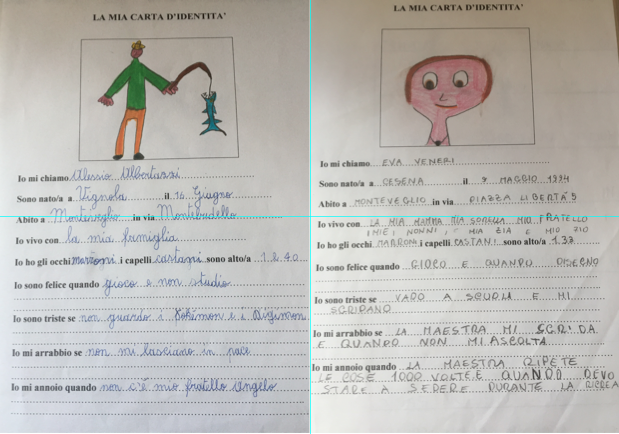 LA MIA CARTA D'IDENTITA'
Io mi chiamo Alessio Albertazzi
Sono nato/a a Vignola il 16 Giugno
Abito a Monteveglio in via Montebudello
Io vivo con la mia famiglia
Io ho gli occhi marroni i capelli castani sono alto/a 1 e 40
Io sono felice quando gioco e non studio
Io sono triste se non guardo i Pokémon e i Digimon
Io mi arrabbio se non mi lasciano in pace
Io mi annoio quando non c'è mio fratello Angelo
LA MIA CARTA D'IDENTITA'
Io mi chiamo EVA VENERI
Sono nato/a a CESENA il 9 MAGGIO 1994
Abito a MONTEVEGLIO in via PIAZZA LIBERTA' 5
Io vivo con LA MIA MAMMA MIA SORELLA MIO FRATELLO
I MIEI NONNI, MIA ZIA E MIO ZIO
Io ho gli occhi MARRONI i capelli CASTANI sono alto/a 1.37
Io sono felice quando GIOCO E QUANDO DISEGNO
Io sono triste se VADO A SCUOLA E MI
SGRIDANO
Io mi arrabbio se LA MAESTRA MI SGRIDA
E QUANDO NON MI ASCOLTA
Io mi annoio quando LA MAESTRA RIPETE
LE COSE 1000 VOLTE E QUANDO DEVO
STARE A SEDERE DURANTE LA RICREA